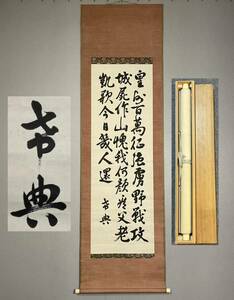 皇師百萬征強虜野戰攻
城屍作山愧我何顔看父老
凱歌今日幾人還 希典
希典